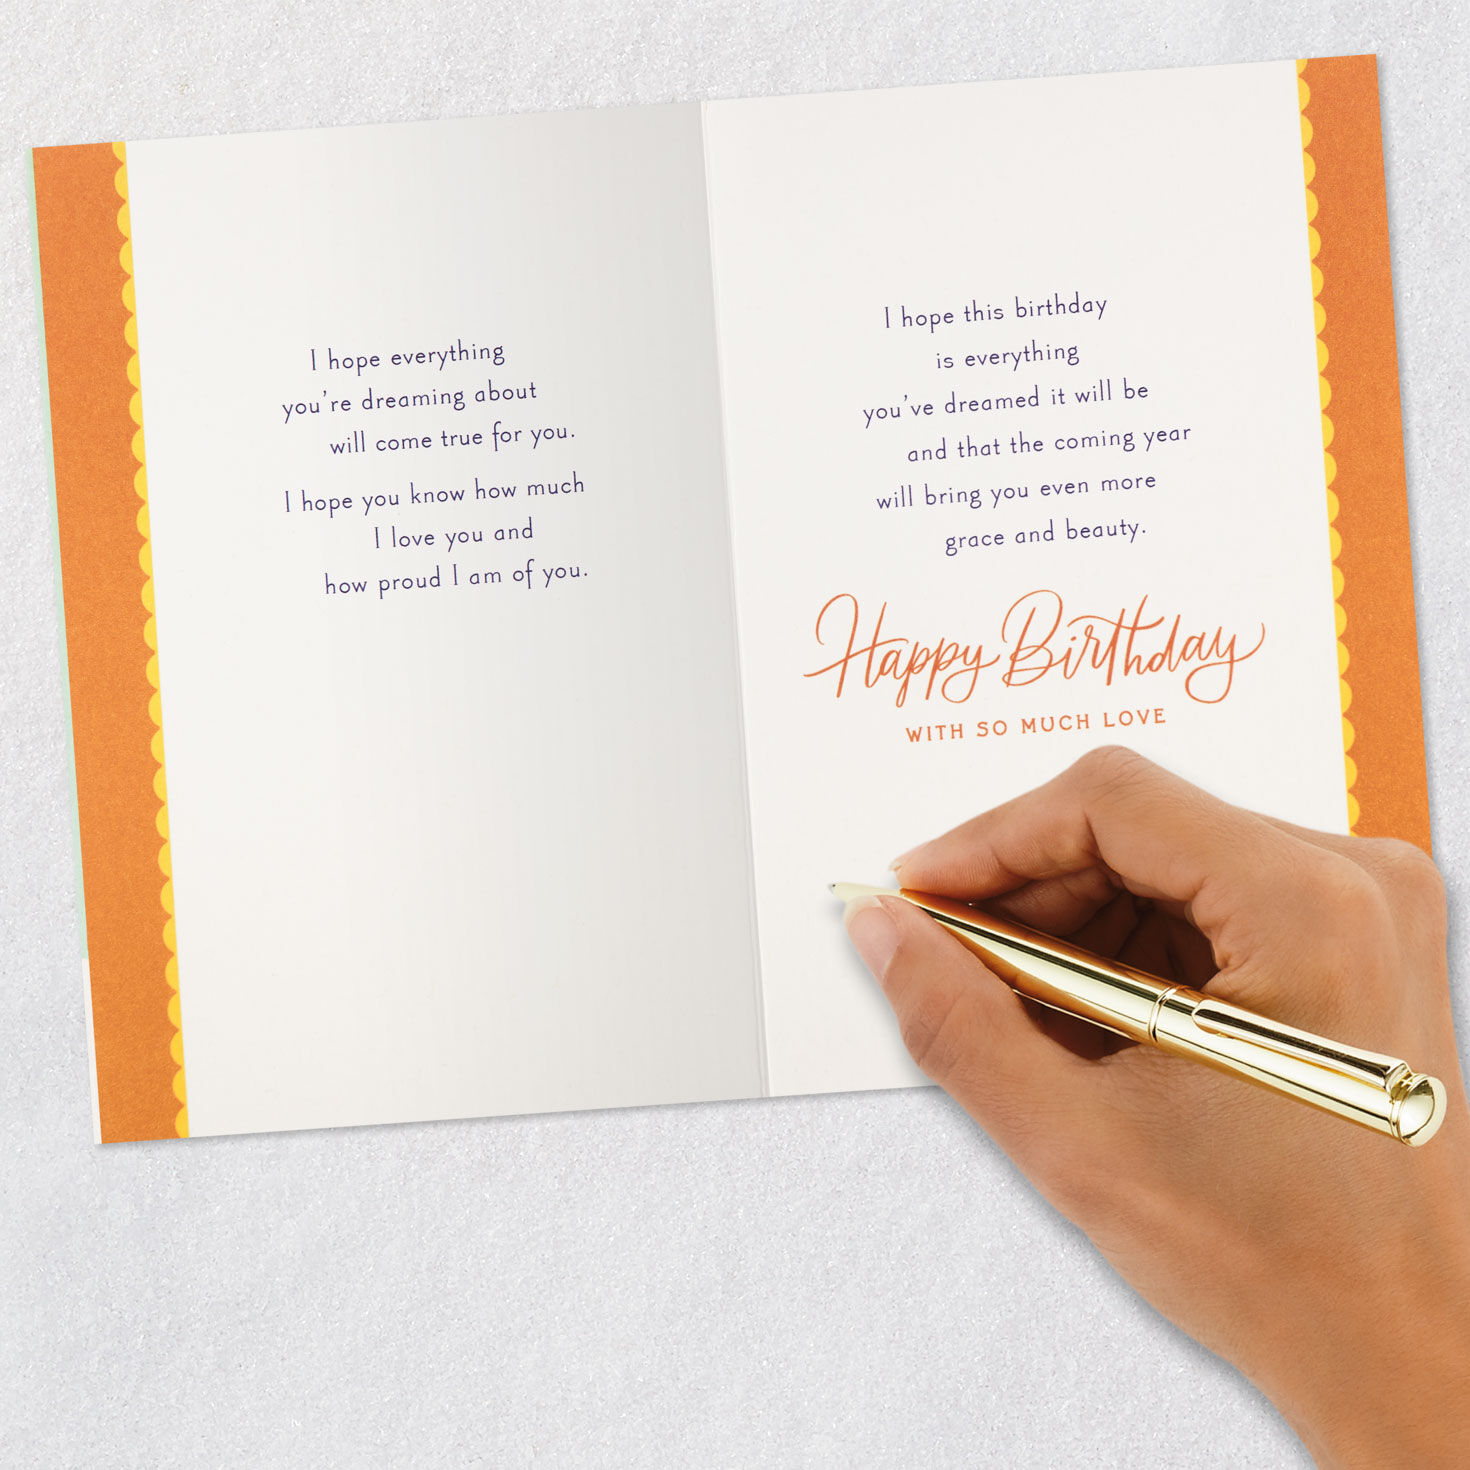 I hope everything
you're dreaming about
will come true for you.
I hope you know how much
I love you and
how proud I am of you.
I hope this birthday
is everything
you've dreamed it will be
and that the coming year
will bring you even more
grace and beauty.
Happy Birthday
WITH SO MUCH LOVE